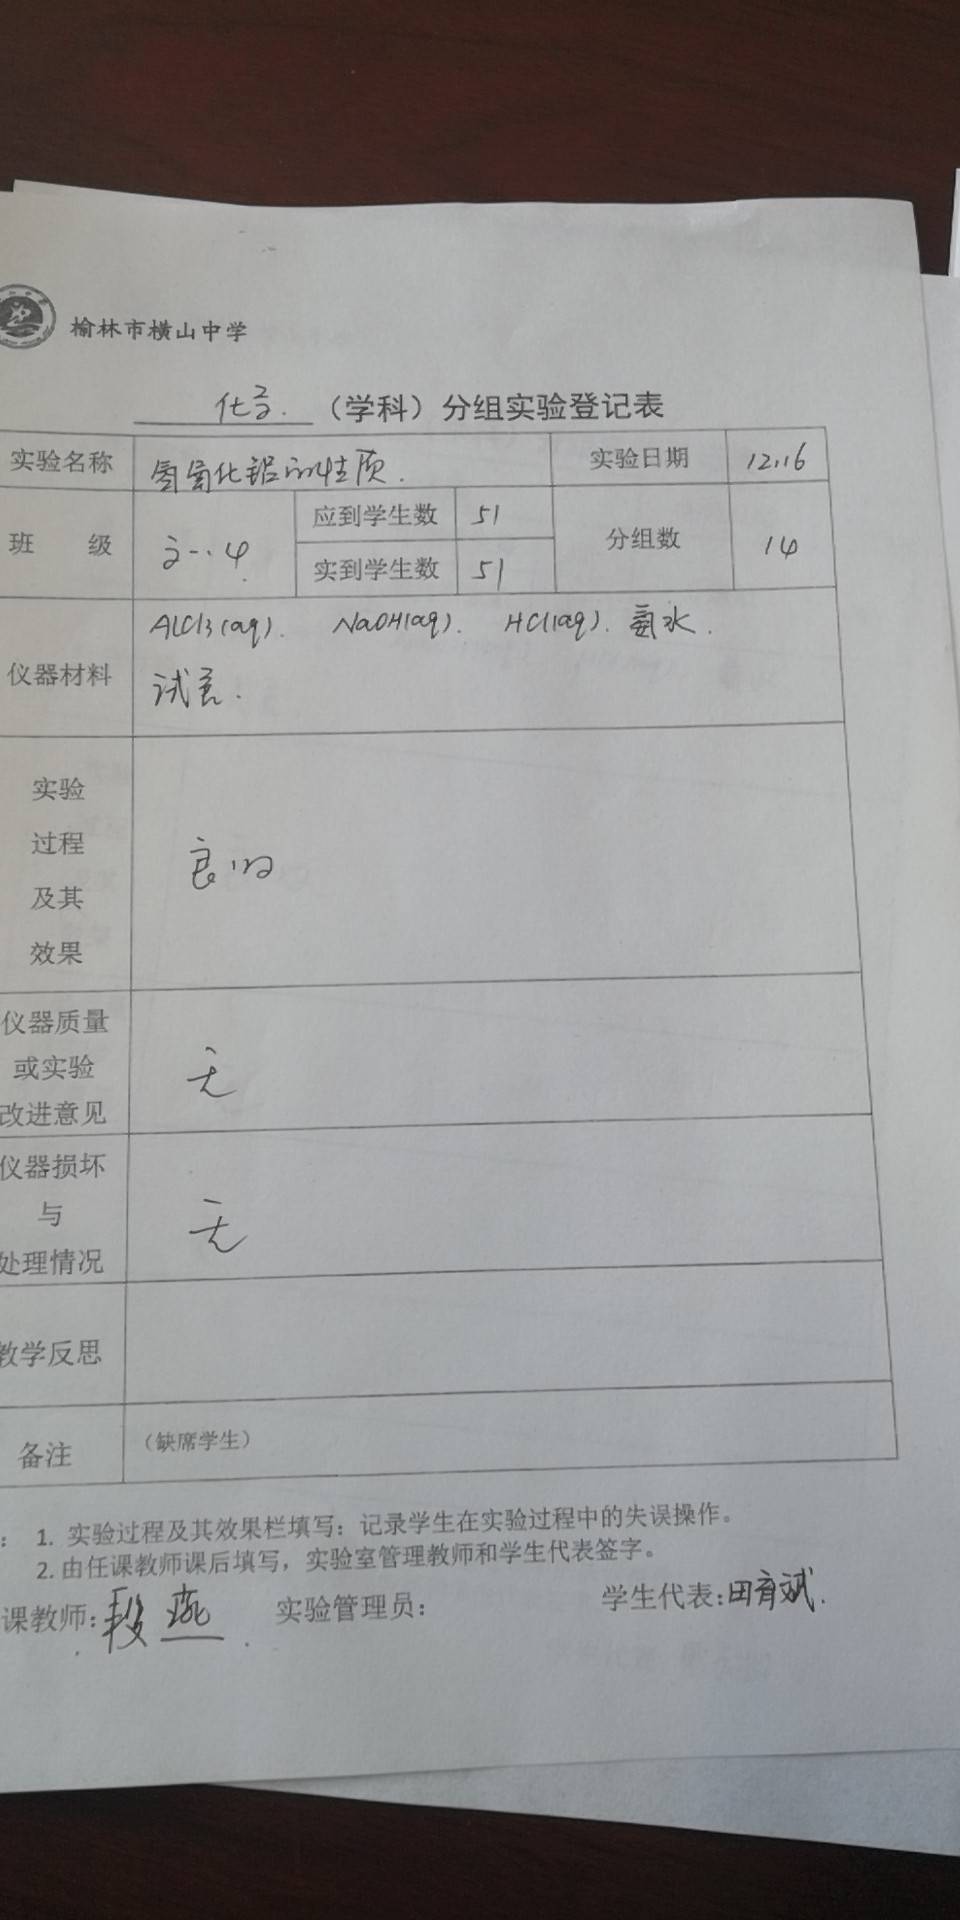 榆林市横山中学
化学. （学科）分组实验登记表
实验名称 氢氧化铝的性质. 实验日期 12.16
班 级 高一.4 应到学生数 51 分组数 14
实到学生数 51
仪器材料 AlCl3(aq). NaOH(aq). HCl(aq). 氨水.
试管.
实验
过程
及其
效果
良好
仪器质量
或实验
改进意见
无
仪器损坏
与
处理情况
无
教学反思
备注 （缺席学生）
： 1. 实验过程及其效果栏填写：记录学生在实验过程中的失误操作。
2. 由任课教师课后填写，实验室管理教师和学生代表签字。
课教师: 段燕 实验管理员： 学生代表: 田育斌.